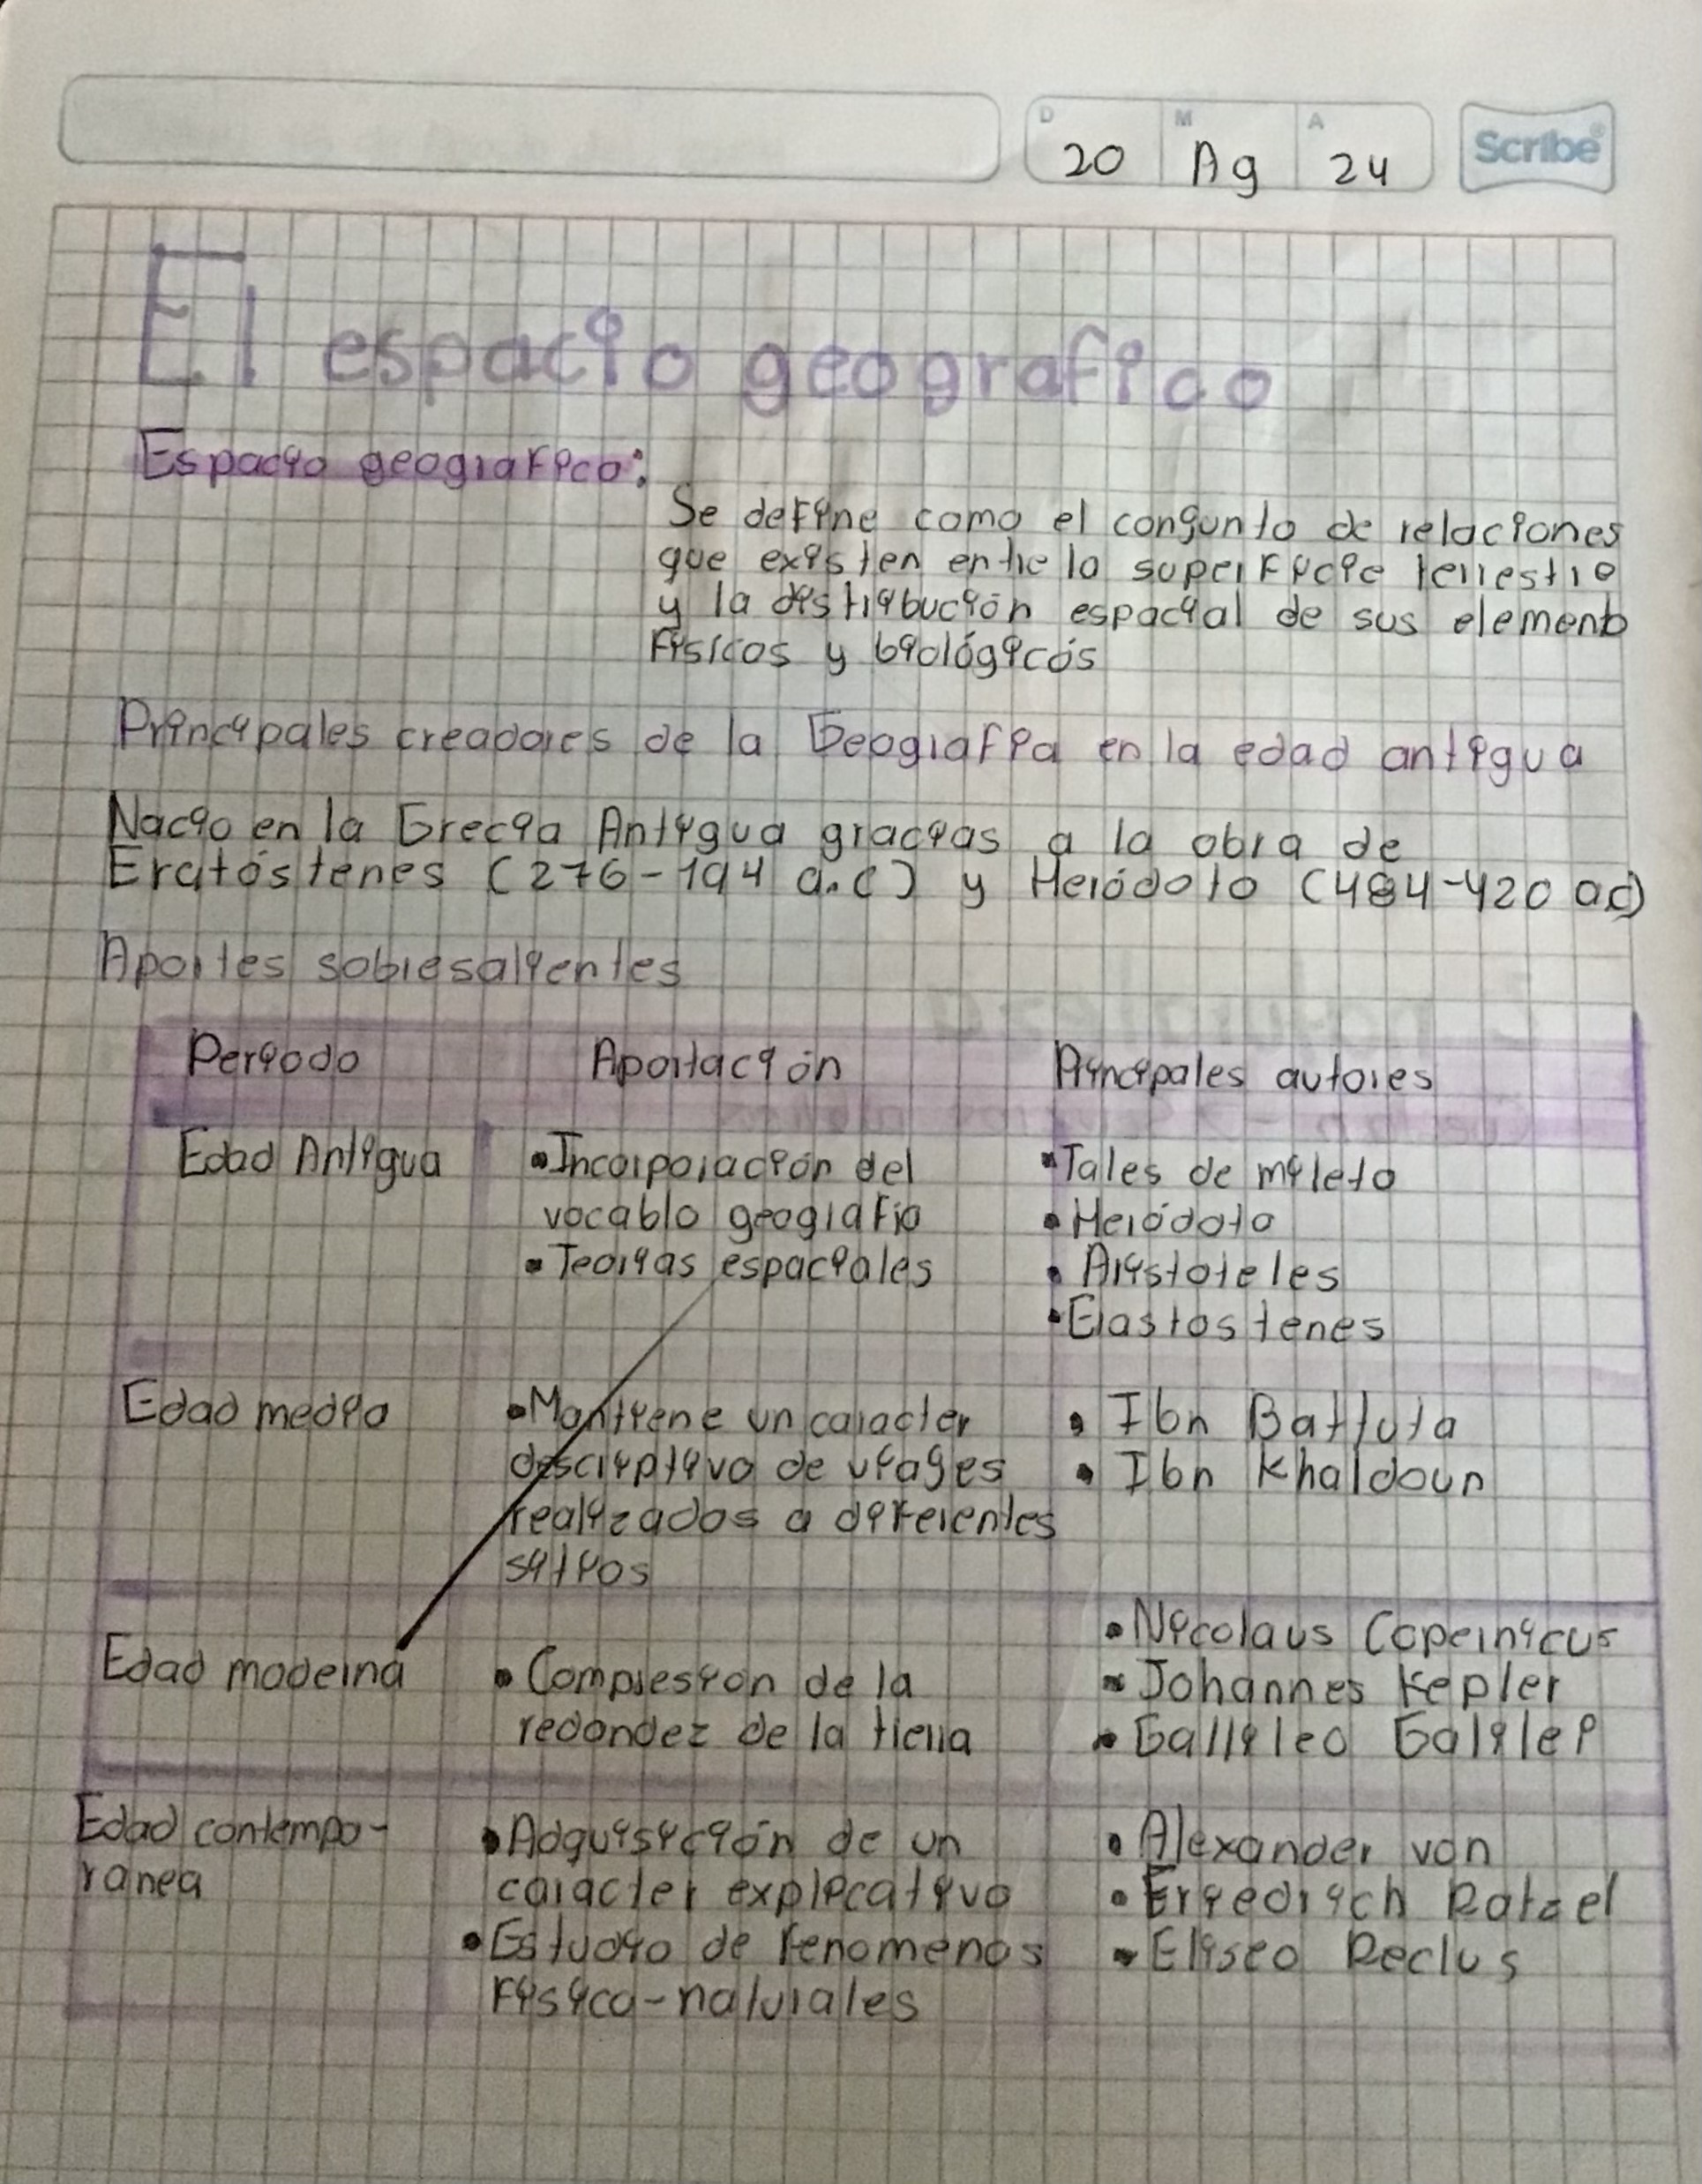 D M A
20 Ag 24
Scribe
El espacio geografico
Espacio geografico:
Se define como el conjunto de relaciones
que existen entre la superficie terrestre
y la distribución espacial de sus element
Fisicos y biológicos
Principales creadores de la Geografia en la edad antigua
Nacio en la Grecia Antigua gracias a la obra de
Eratóstenes (276-194 a.c) y Heródoto (484-420 ac)
Aportes sobresalientes
Periodo Aportación Principales autores
Edad Antigua
•Incorporación del
vocablo geografia
•Teorias espaciales
•Tales de mileto
•Heródoto
•Aristoteles
•Erastostenes
Edad media
•Mantiene un caracter
descriptivo de viages
realizados a diferentes
sitios
•Ibn Battuta
•Ibn Khaldoun
Edad moderna
•Compresion de la
redondez de la tierra
•Nicolaus Copernicus
•Johannes Kepler
•Gallileo Galilei
Edad contempo-
ranea
•Adquisición de un
caracter explicativo
•Estudio de fenomenos
Fisico-naturales
•Alexander von
•Friedrich Ratzel
•Eliseo Reclus